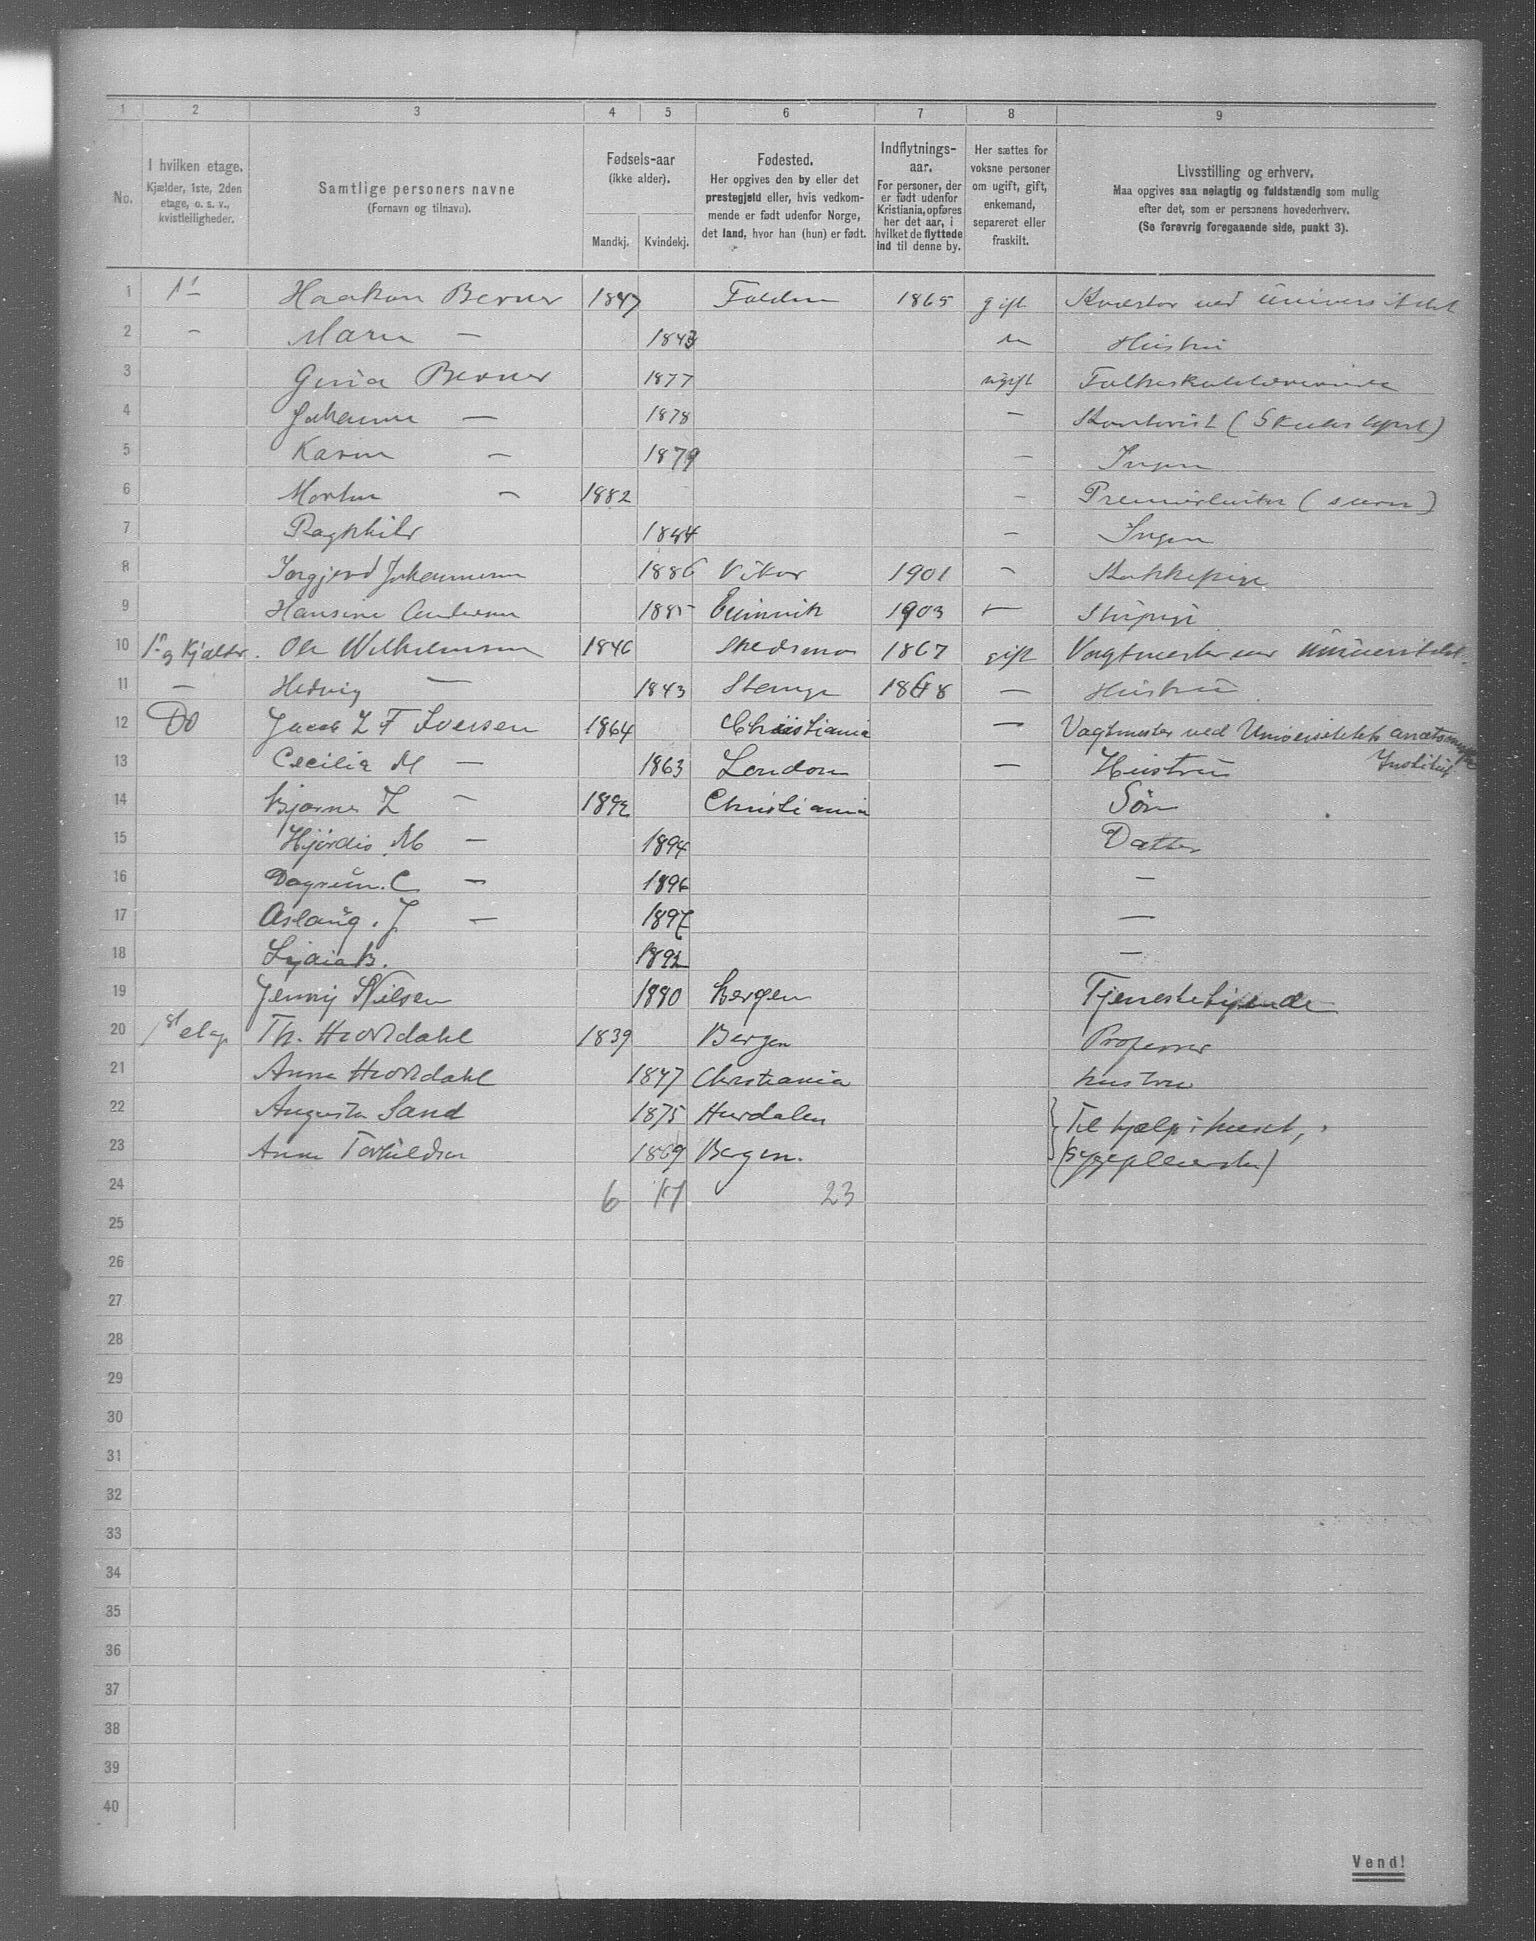 1 2 3 4 5 6 7 8 9
No. I hvilken etage. Kjælder, 1ste, 2den etage, o. s. v., kvistleiligheder. Samtlige personers navne (Fornavn og tilnavn). Fødsels-aar (ikke alder). Mandkj. Kvindekj. Fødested. Her opgives den by eller det prestegjeld eller, hvis vedkommende er født udenfor Norge, det land, hvor han (hun) er født. Indflytnings-aar. For personer, der er født udenfor Kristiania, opføres her det aar, i hvilket de flyttede ind til denne by. Her sættes for voksne personer om ugift, gift, enkemand, separeret eller fraskilt. Livsstilling og erhverv. Maa opgives saa nøiagtig og fuldstændig som mulig efter det, som er personens hovederhverv. (Se forøvrig foregaaende side, punkt 3).
1 1ste Haakon Berner 1847 Folden 1865 gift Kvæstor ved Universitetet
2 — Maren — 1843 Hustru
3 Gina Berner 1877 ugift Folkeskolelærerinde
4 Johanne — 1878 —
5 Karen — 1879 — Ingen
6 Morten — 1882 — Premierløitn
7 Ragnhild 1884 — Ingen
8 Johannesen 1886 Vikør 1901 — Kokkepige
9 Hansine Andersen 1885 1903 — Stupige
10 1ste og Kjælder. Ole Wilhelmsen 1846 Skedsmo 1867 gift Vagtmester ved Universitetet.
11 — Hedvig — 1843 Stange 1868 — Hustru
12 Do Jacob L F Iversen 1864 Christiania — Vagtmester ved Universitetets anatomiske Institut
13 Cecilia M — 1863 London — Hustru
14 Bjarne L — 1892 Christiania Søn
15 Hjørdis M — 1894 Datter
16 Dagrun. C — 1896 —
17 Aslaug. J — 1897 —
18 Lydia B. 1892 —
19 Jenny Nilsen 1880 Bergen Tjenestetyende
20 1st etag Th. Hiortdahl 1839 Bergen Professor
21 Anna Hiortdahl 1847 Christiania hustru
22 Augusta Sand 1875 Hurdalen Til hjælp i huset,
23 Anna Torkildsen 1869 Bergen. (sygepleierske)
24 6 17 23
25
26
27
28
29
30
31
32
33
34
35
36
37
38
39
40
Vend!